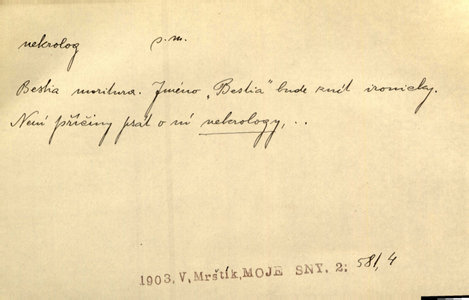 nekrolog s. m.
Bestia moritura. Jméno „Bestia“ bude znít ironicky.
Není příčiny psát o ní nekrology, ..
1903, V, Mrštík, MOJE SNY. 2: 581, 4